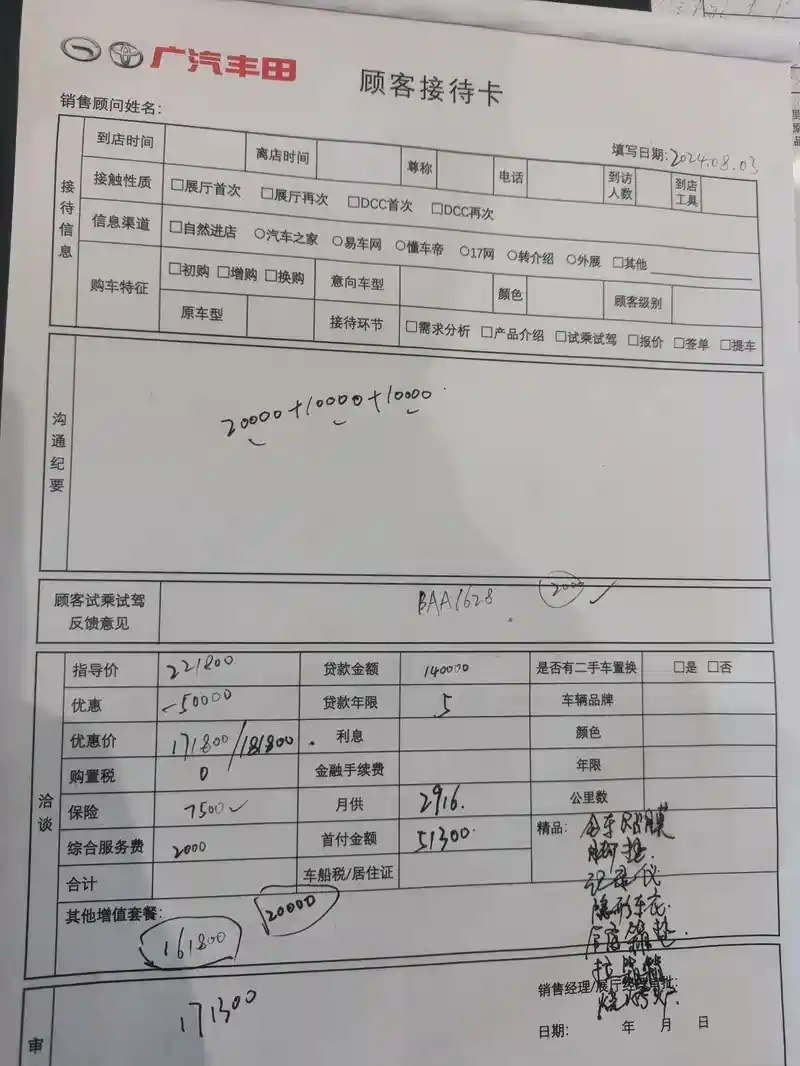 广汽丰田
顾客接待卡
销售顾问姓名:
填写日期: 2024.08.03
接待信息
到店时间 离店时间 尊称 电话 到访人数 到店工具
接触性质 □展厅首次 □展厅再次 □DCC首次 □DCC再次
信息渠道 □自然进店 ○汽车之家 ○易车网 ○懂车帝 ○17网 ○转介绍 ○外展 □其他
购车特征 □初购 □增购 □换购 意向车型 颜色 顾客级别
原车型 接待环节 □需求分析 □产品介绍 □试乘试驾 □报价 □签单 □提车
沟通纪要
20000+10000+10000
顾客试乘试驾反馈意见 BAA1628 2000
洽谈
指导价 221800 贷款金额 140000 是否有二手车置换 □是 □否
优惠 -50000 贷款年限 5 车辆品牌
优惠价 171800/181800 利息 颜色
购置税 0 金融手续费 年限
保险 7500 月供 2916 公里数
综合服务费 2000 首付金额 51300 精品: 全车贴膜
脚垫
记录仪
隐形车衣
合计 车船税/居住证
其他增值套餐: 20000
161800
销售经理/展厅经理审批:
171300
日期: 年 月 日
审